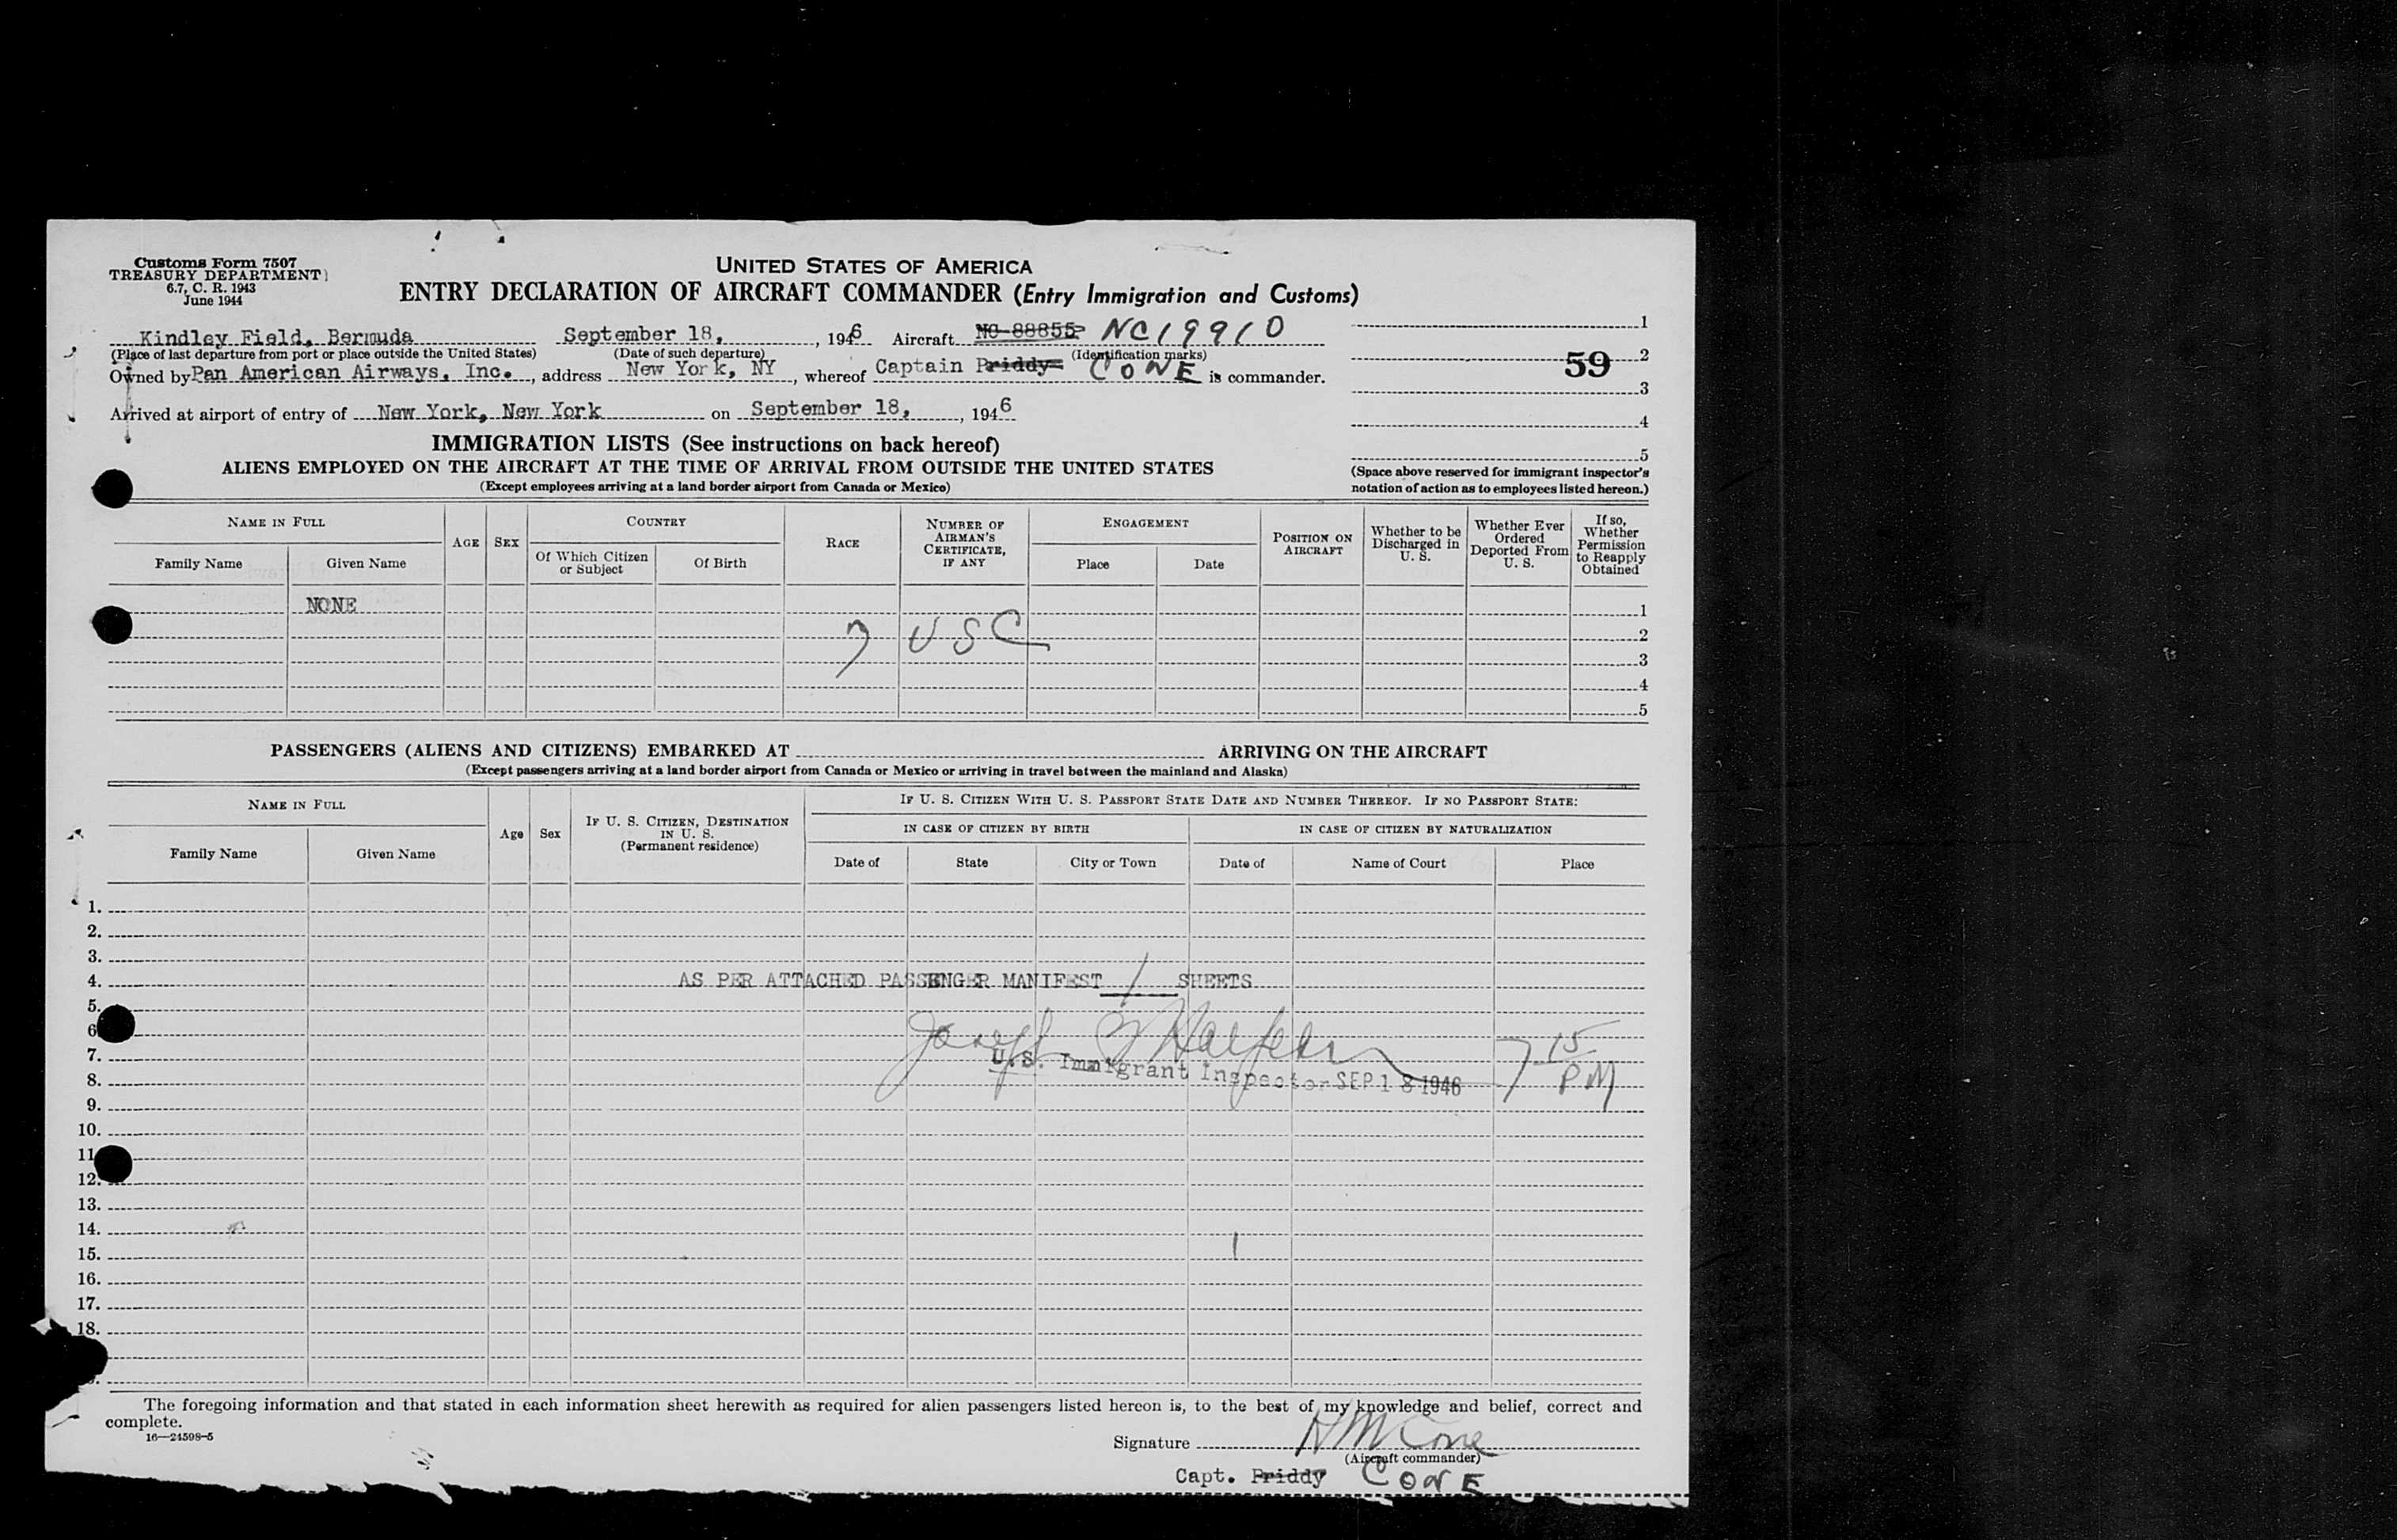 Customs Form 7507
TREASURY DEPARTMENT
6.7, C. R. 1943
June 1944
UNITED STATES OF AMERICA
ENTRY DECLARATION OF AIRCRAFT COMMANDER (Entry Immigration and Customs)
Kindley Field, Bermuda September 18, , 1946 Aircraft NC-88855 NC19910 1
(Place of last departure from port or place outside the United States) (Date of such departure) (Identification marks)
59 2
Owned by Pan American Airways, Inc. , address New York, NY , whereof Captain Priddy CONE is commander.
3
Arrived at airport of entry of New York, New York on September 18, , 1946
4
5
IMMIGRATION LISTS (See instructions on back hereof)
ALIENS EMPLOYED ON THE AIRCRAFT AT THE TIME OF ARRIVAL FROM OUTSIDE THE UNITED STATES
(Except employees arriving at a land border airport from Canada or Mexico)
(Space above reserved for immigrant inspector's
notation of action as to employees listed hereon.)
NAME IN FULL
Family Name Given Name
AGE SEX
COUNTRY
Of Which Citizen or Subject Of Birth
RACE
NUMBER OF AIRMAN'S CERTIFICATE, IF ANY
ENGAGEMENT
Place Date
POSITION ON AIRCRAFT
Whether to be Discharged in U. S.
Whether Ever Ordered Deported From U. S.
If so, Whether Permission to Reapply Obtained
NONE 1
7 USC 2
3
4
5
PASSENGERS (ALIENS AND CITIZENS) EMBARKED AT ARRIVING ON THE AIRCRAFT
(Except passengers arriving at a land border airport from Canada or Mexico or arriving in travel between the mainland and Alaska)
NAME IN FULL
Family Name Given Name
Age Sex
IF U. S. CITIZEN, DESTINATION IN U. S. (Permanent residence)
IF U. S. CITIZEN WITH U. S. PASSPORT STATE DATE AND NUMBER THEREOF. IF NO PASSPORT STATE:
IN CASE OF CITIZEN BY BIRTH IN CASE OF CITIZEN BY NATURALIZATION
Date of State City or Town Date of Name of Court Place
1.
2.
3.
4. AS PER ATTACHED PASSENGER MANIFEST 1 SHEETS
5.
6
7. Joseph 7 15 PM
8. U.S. Immigrant Inspector SEP 18 1946
9.
10.
11
12.
13.
14.
15.
16.
17.
18.
The foregoing information and that stated in each information sheet herewith as required for alien passengers listed hereon is, to the best of my knowledge and belief, correct and
complete.
16—24598-5
Signature HM Cone
(Aircraft commander)
Capt. Priddy CONE